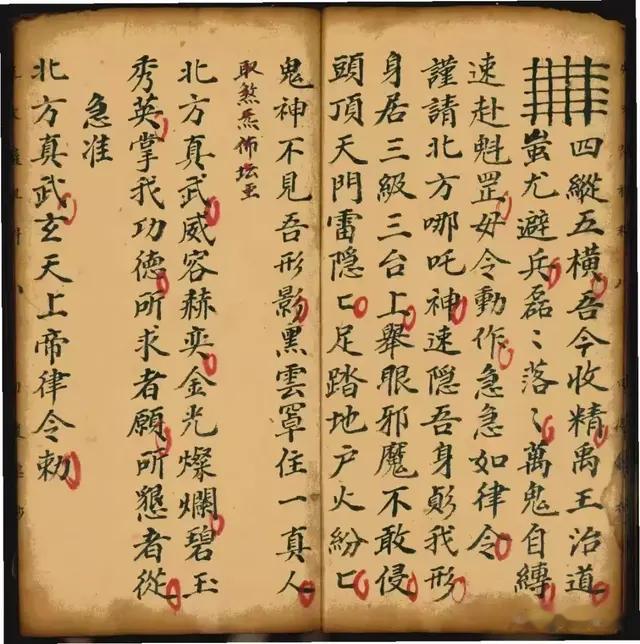 四縱五橫吾今收精禹王治道
蚩尤避兵磊〻落〻萬鬼自縛
速赴魁罡毋令動作急急如律令
謹請北方哪吒神速隱吾身 我形
身居三級三台上舉眼邪魔不敢侵
頭頂天門雷隐匕足踏地户火紛匕
鬼神不見吾形影黑雲罩住一真人
取煞炁佈坛至
北方真武威容赫奕金光燦爛碧玉
秀英掌我功德所求者願所懇者從
急准
北方真武玄天上帝律令勅